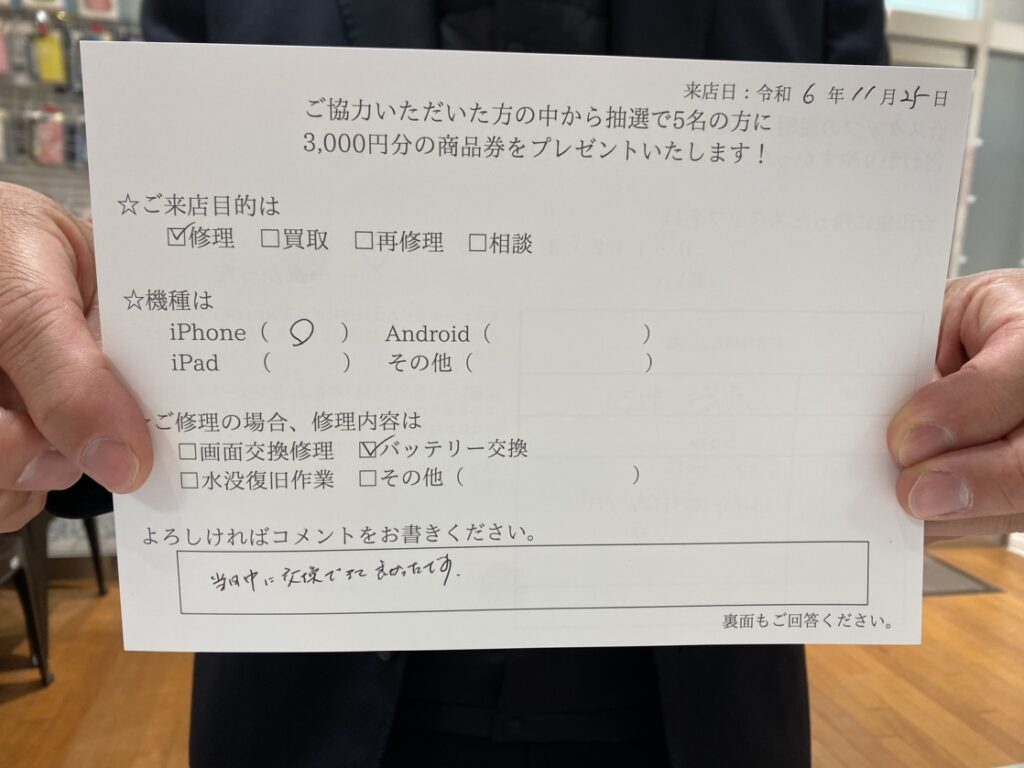 来店日：令和 6 年 11 月 25 日
ご協力いただいた方の中から抽選で5名の方に
3,000円分の商品券をプレゼントいたします！
☆ご来店目的は
☑修理 □買取 □再修理 □相談
☆機種は
iPhone（ ○ ） Android（ ）
iPad （ ） その他（ ）
ご修理の場合、修理内容は
□画面交換修理 ☑バッテリー交換
□水没復旧作業 □その他（ ）
よろしければコメントをお書きください。
当日中に交換できて良かったです.
裏面もご回答ください。